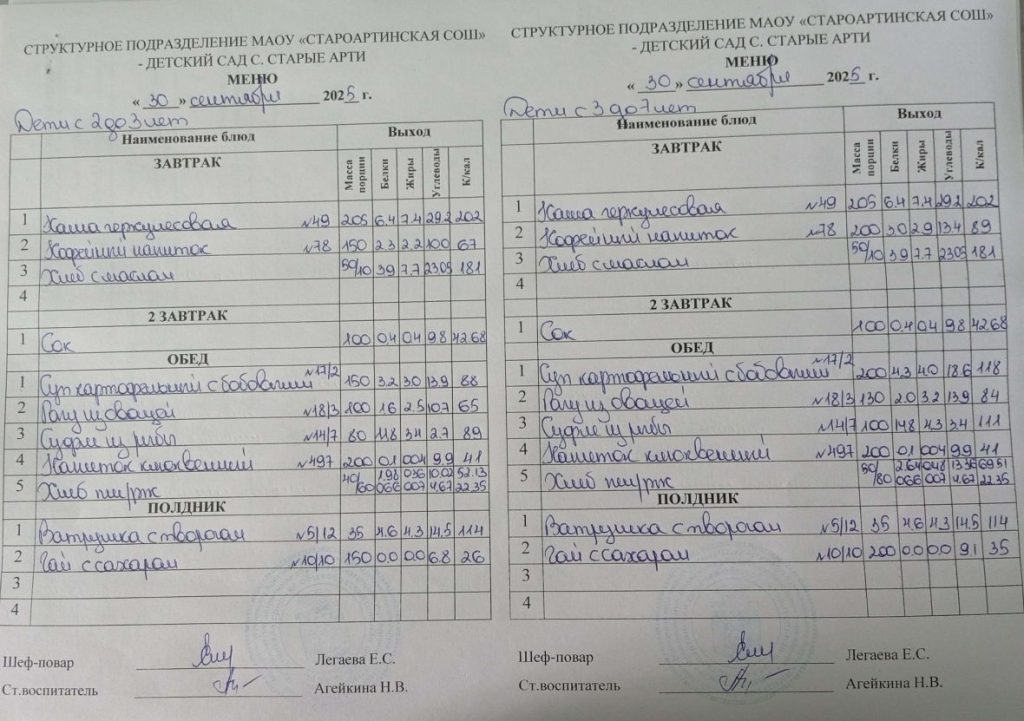 СТРУКТУРНОЕ ПОДРАЗДЕЛЕНИЕ МАОУ «СТАРОАРТИНСКАЯ СОШ»
- ДЕТСКИЙ САД С. СТАРЫЕ АРТИ
МЕНЮ
« 30 » сентября 2025 г.
Дети с 2 до 3 лет
Наименование блюд Выход
ЗАВТРАК Масса порции Белки Жиры Углеводы К/кал
1 Каша геркулесовая №49 205 6.4 7.4 29.2 202
2 Кофейный напиток №78 150 2.3 2.2 10.0 67
3 Хлеб с маслом 50/10 3.9 7.7 23.05 181
4
2 ЗАВТРАК
1 Сок 100 0.4 0.4 9.8 42.68
ОБЕД
1 Суп картофельный с бобовыми №17/2 150 3.2 3.0 13.9 88
2 Рагу из овощей №18/3 100 1.6 2.5 10.7 65
3 Суфле из рыбы №14/7 80 11.8 3.4 2.7 89
4 Напиток клюквенный №497 200 0.1 0.04 9.9 41
5 Хлеб пш/рж 40/60 1.98 0.36 10.02 52.13
0.66 0.07 4.67 22.35
ПОЛДНИК
1 Ватрушка с творогом №5/12 35 4.6 4.3 14.5 114
2 Чай с сахаром №10/10 150 0.0 0.0 6.8 26
3
4
Шеф-повар Легаева Е.С.
Ст.воспитатель Агейкина Н.В.
СТРУКТУРНОЕ ПОДРАЗДЕЛЕНИЕ МАОУ «СТАРОАРТИНСКАЯ СОШ»
- ДЕТСКИЙ САД С. СТАРЫЕ АРТИ
МЕНЮ
« 30 » сентября 2025 г.
Дети с 3 до 7 лет
Наименование блюд Выход
ЗАВТРАК Масса порции Белки Жиры Углеводы К/кал
1 Каша геркулесовая №49 205 6.4 7.4 29.2 202
2 Кофейный напиток №78 200 3.0 2.9 13.4 89
3 Хлеб с маслом 50/10 3.9 7.7 23.05 181
4
2 ЗАВТРАК
1 Сок 100 0.4 0.4 9.8 42.68
ОБЕД
1 Суп картофельный с бобовыми №17/2 200 4.3 4.0 18.6 118
2 Рагу из овощей №18/3 130 2.0 3.2 13.9 84
3 Суфле из рыбы №14/7 100 14.8 4.3 3.4 111
4 Напиток клюквенный №497 200 0.1 0.04 9.9 41
5 Хлеб пш/рж 50/80 2.64 0.48 13.36 69.51
0.66 0.07 4.67 22.35
ПОЛДНИК
1 Ватрушка с творогом №5/12 35 4.6 4.3 14.5 114
2 Чай с сахаром №10/10 200 0.0 0.0 9.1 35
3
4
Шеф-повар Легаева Е.С.
Ст.воспитатель Агейкина Н.В.